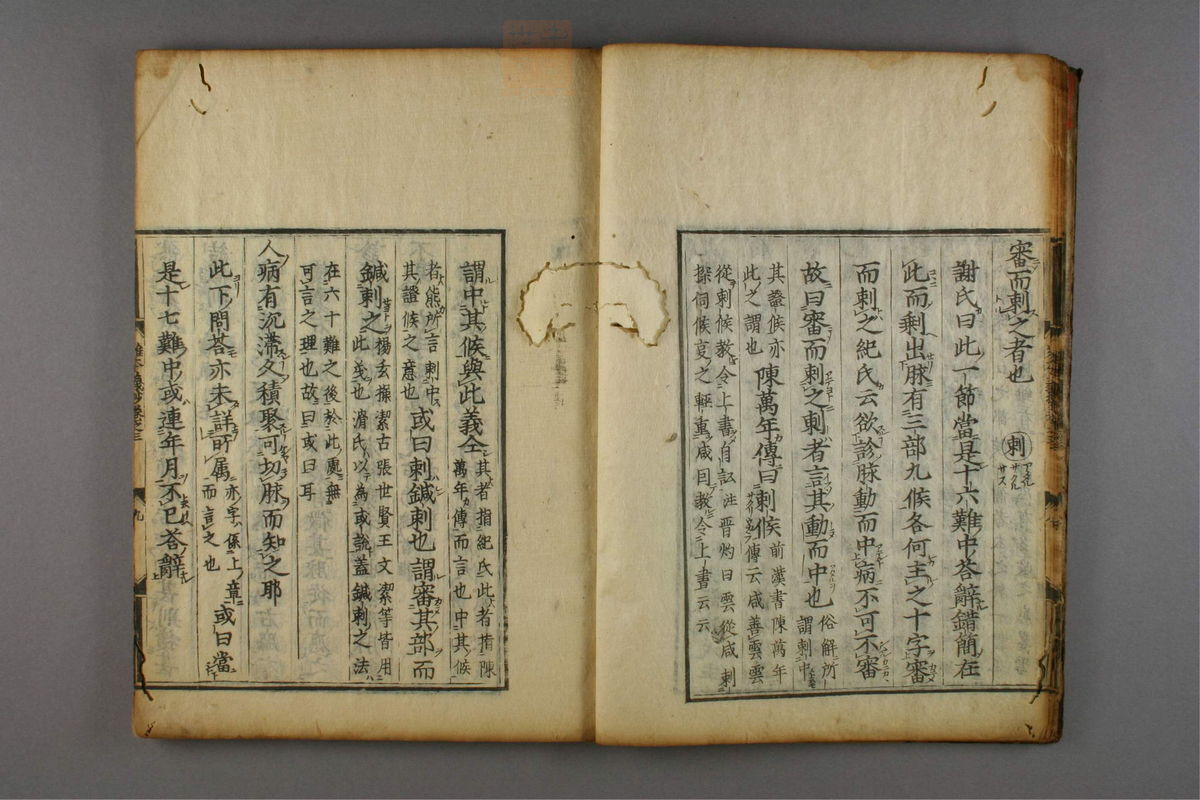 審而刺之者也 刺
謝氏曰此一節當是十六難中荅辭錯簡在
此而剩出脉有三部九候各何主之十字審
而刺之紀氏云欲診脉動而中病不可不審
故曰審而刺之刺者言其動而中也 俗解所
謂刺中
其證候亦
此之謂也 陳萬年傳曰刺候 前漢書陳萬年
傳云咸善雲雲
從刺候教令上書自訟注晋灼曰雲從咸刺
探伺候㕛之輕重咸因教令上書云云
謂中其候與此義仝 其者指紀氏此者指陳
萬年傳而言也中其候
者熊所言刺中
其證候之意也 或曰刺鍼刺也謂審其部而
鍼刺之 楊玄操潔古張世賢王文潔等皆用
此𢦤也滑氏以為或說蓋鍼刺之法
在六十難之後於此處無
可言之理也故曰或曰耳
人病有沉滯久積聚可切脉而知之耶
此下問荅亦未詳所属 亦字係上章
而言之也 或曰當
是十七難中或連年月不已荅辭